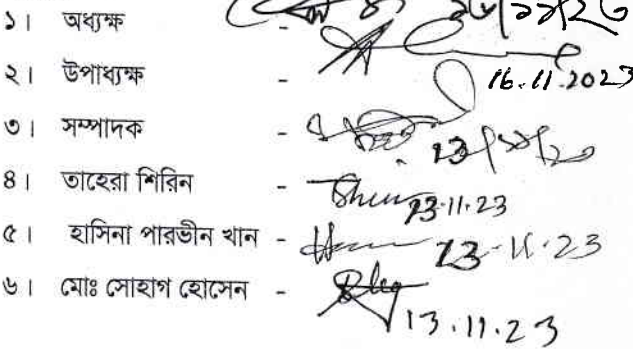 ১। অধ্যক্ষ -
২। উপাধ্যক্ষ - 16.11.2023
৩। সম্পাদক -
৪। তাহেরা শিরিন - 13.11.23
৫। হাসিনা পারভীন খান - 13-11.23
৬। মোঃ সোহাগ হোসেন - 13.11.23